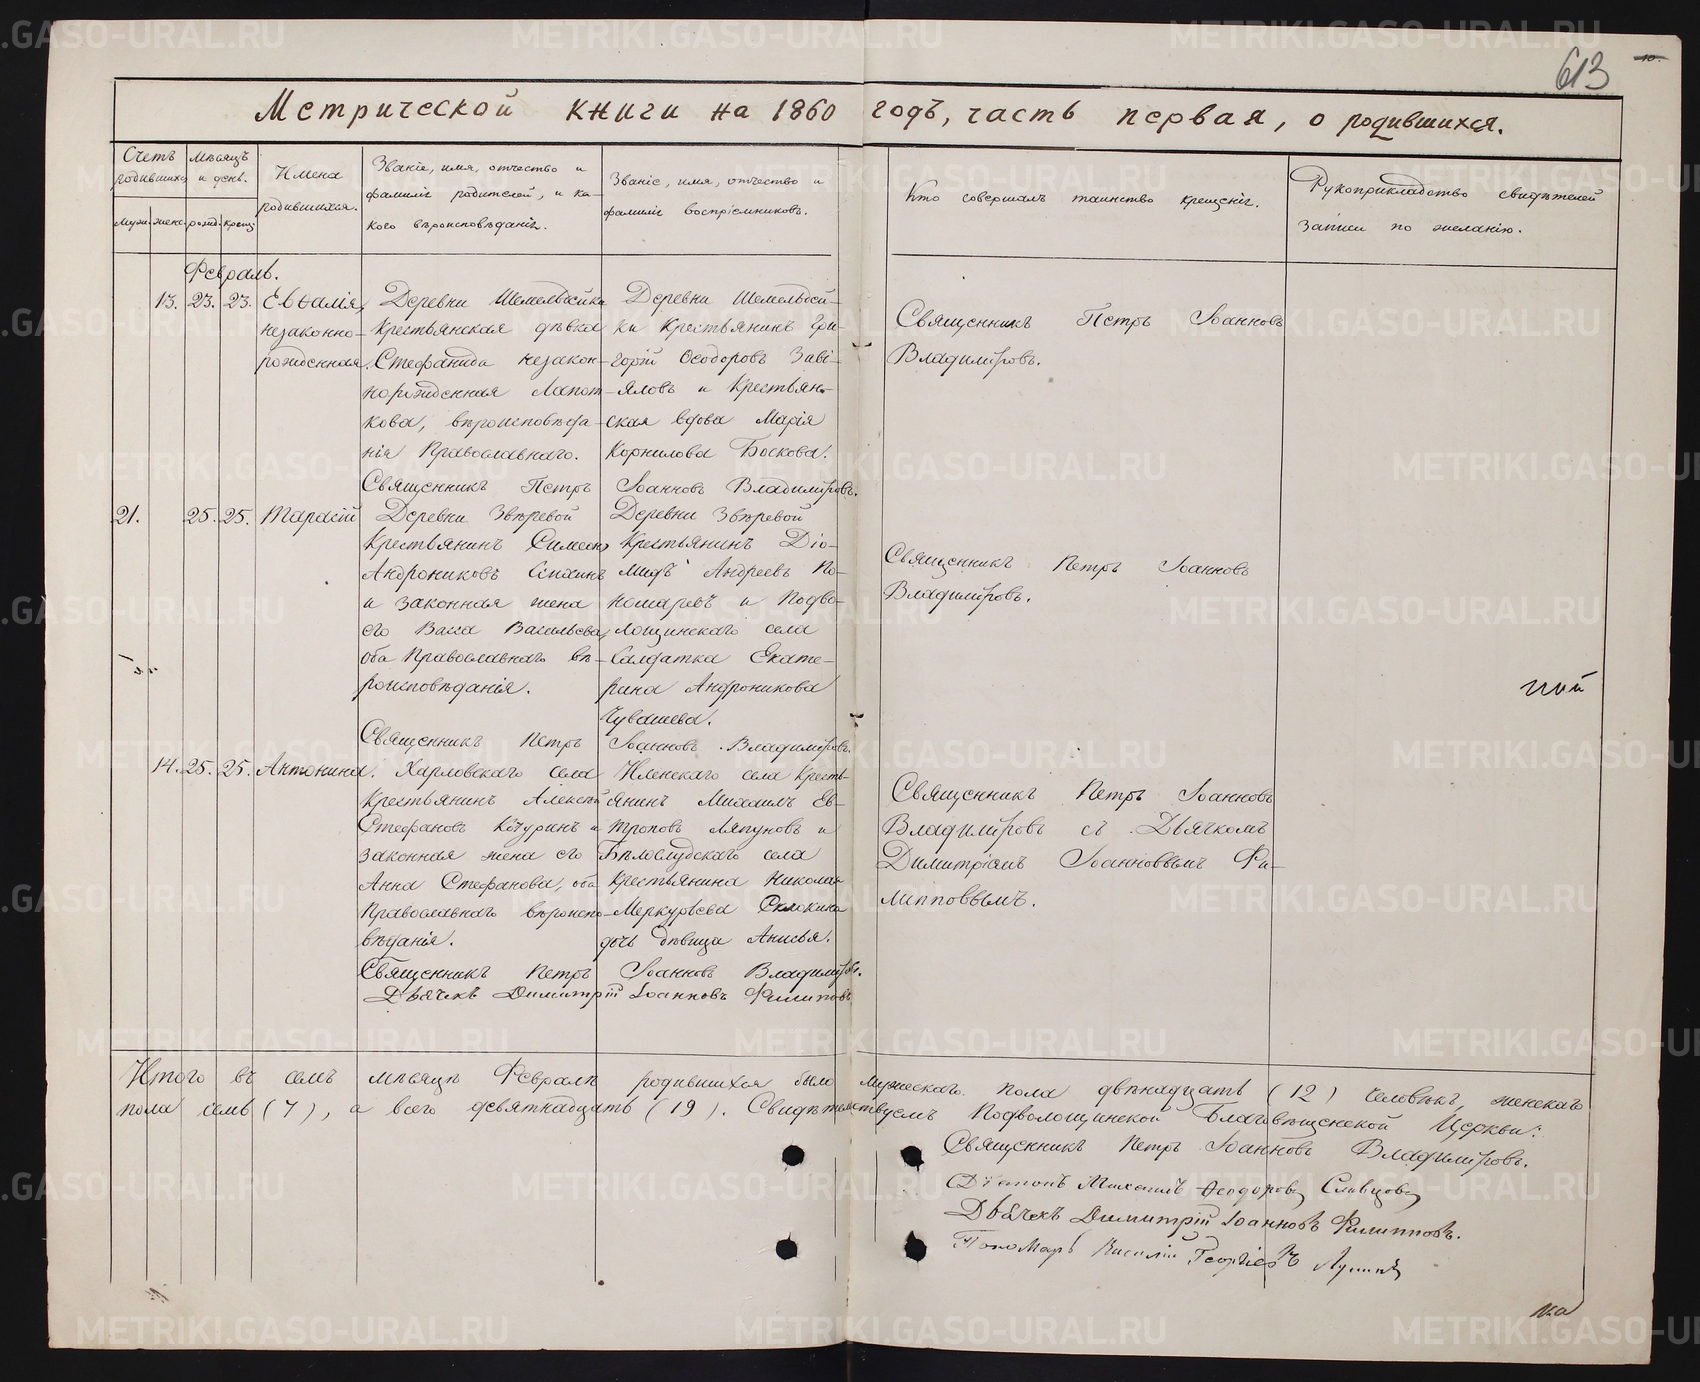 613
Метрической книги на 1860 годъ, часть первая, о родившихся.
Счетъ родившихся
Мѣсяцъ и день.
Имена родившихся.
Званіе, имя, отчество и
фамилія родителей, и ка-
кого вѣроисповѣданія.
Званіе, имя, отчество и
фамилія воспріемниковъ.
Кто совершалъ таинство крещенія.
Рукоприкладство свидѣтелей
записи по желанію.
Муж. жен. рожд. крещ.
Февраль.
13. 23. 23. Евѳалія,
незаконно-
рожденная.
Деревни Шемельдейки
Крестьянская дѣвка
Стефанида незакон-
норожденная Лапот-
кова, вѣроисповѣда-
нія Православнаго.
Деревни Шемельдей-
ки Крестьянинъ Гри-
горій Ѳеодоровъ Заві-
яловъ и Крестьян-
ская вдова Марія
Корнилова Боскова.
Священникъ Петръ Іоанновъ
Владиміровъ.
Священникъ Петръ Іоанновъ Владиміровъ.
21. 25. 25. Тарасій
Деревни Звѣревой
Крестьянинъ Симеонъ
Андрониковъ
и законная жена
его Васса Васильева,
оба Православнаго вѣ-
роисповѣданія.
Деревни Звѣревой
Крестьянинъ Діо-
мидъ Андреевъ По-
номаревъ и Подво-
лощинскаго села
Салдатка Екате-
рина Андроникова
Чувашева.
Священникъ Петръ Іоанновъ
Владиміровъ.
Священникъ Петръ Іоанновъ Владиміровъ.
ной
14. 25. 25. Антонина.
Харловскаго села
Крестьянинъ Алексѣй
Стефановъ Кочуринъ и
законная жена его
Анна Стефанова, оба
Православнаго вѣроиспо-
вѣданія.
села Кресть-
янинъ Михаилъ Ев-
троповъ Ляпуновъ и
Бѣлослудскаго села
Крестьянина Николая
Меркурьева
дочь дѣвица Анисья.
Священникъ Петръ Іоанновъ
Владиміровъ съ Дьячкомъ
Димитріемъ Іоанновымъ Фи-
липповымъ.
Священникъ Петръ Іоанновъ Владиміровъ.
Дьячекъ Димитрій Іоанновъ Филиповъ
Итого въ семъ мѣсяцѣ Февралѣ родившихся было мужескаго пола двѣнадцать (12) человѣкъ, женскаго
пола семь (7), а всего девятнадцать (19). Свидѣтельствуемъ Подволощинской Благовѣщенской Церкви:
Священникъ Петръ Іоанновъ Владиміровъ.
Діаконъ Михаилъ Ѳеодоровъ Словцовъ
Дьячекъ Димитрій Іоанновъ Филипповъ.
Пономарь Василій Георгіевъ
METRIKI.GASO-URAL.RU